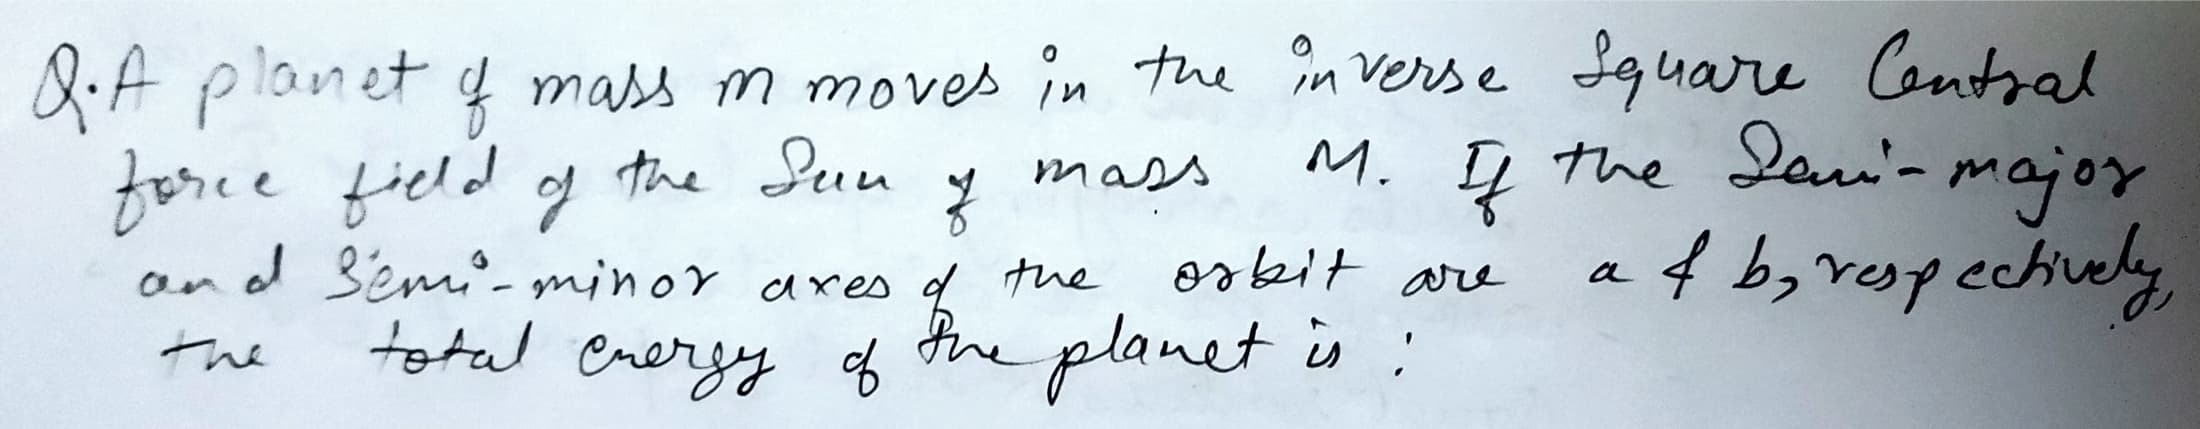 Q. A planet of mass m moves in the inverse square Central
force field of the Sun of mass M. If the Semi-major
and Semi-minor axes of the orbit are a & b, respectively,
the total energy of the planet is :